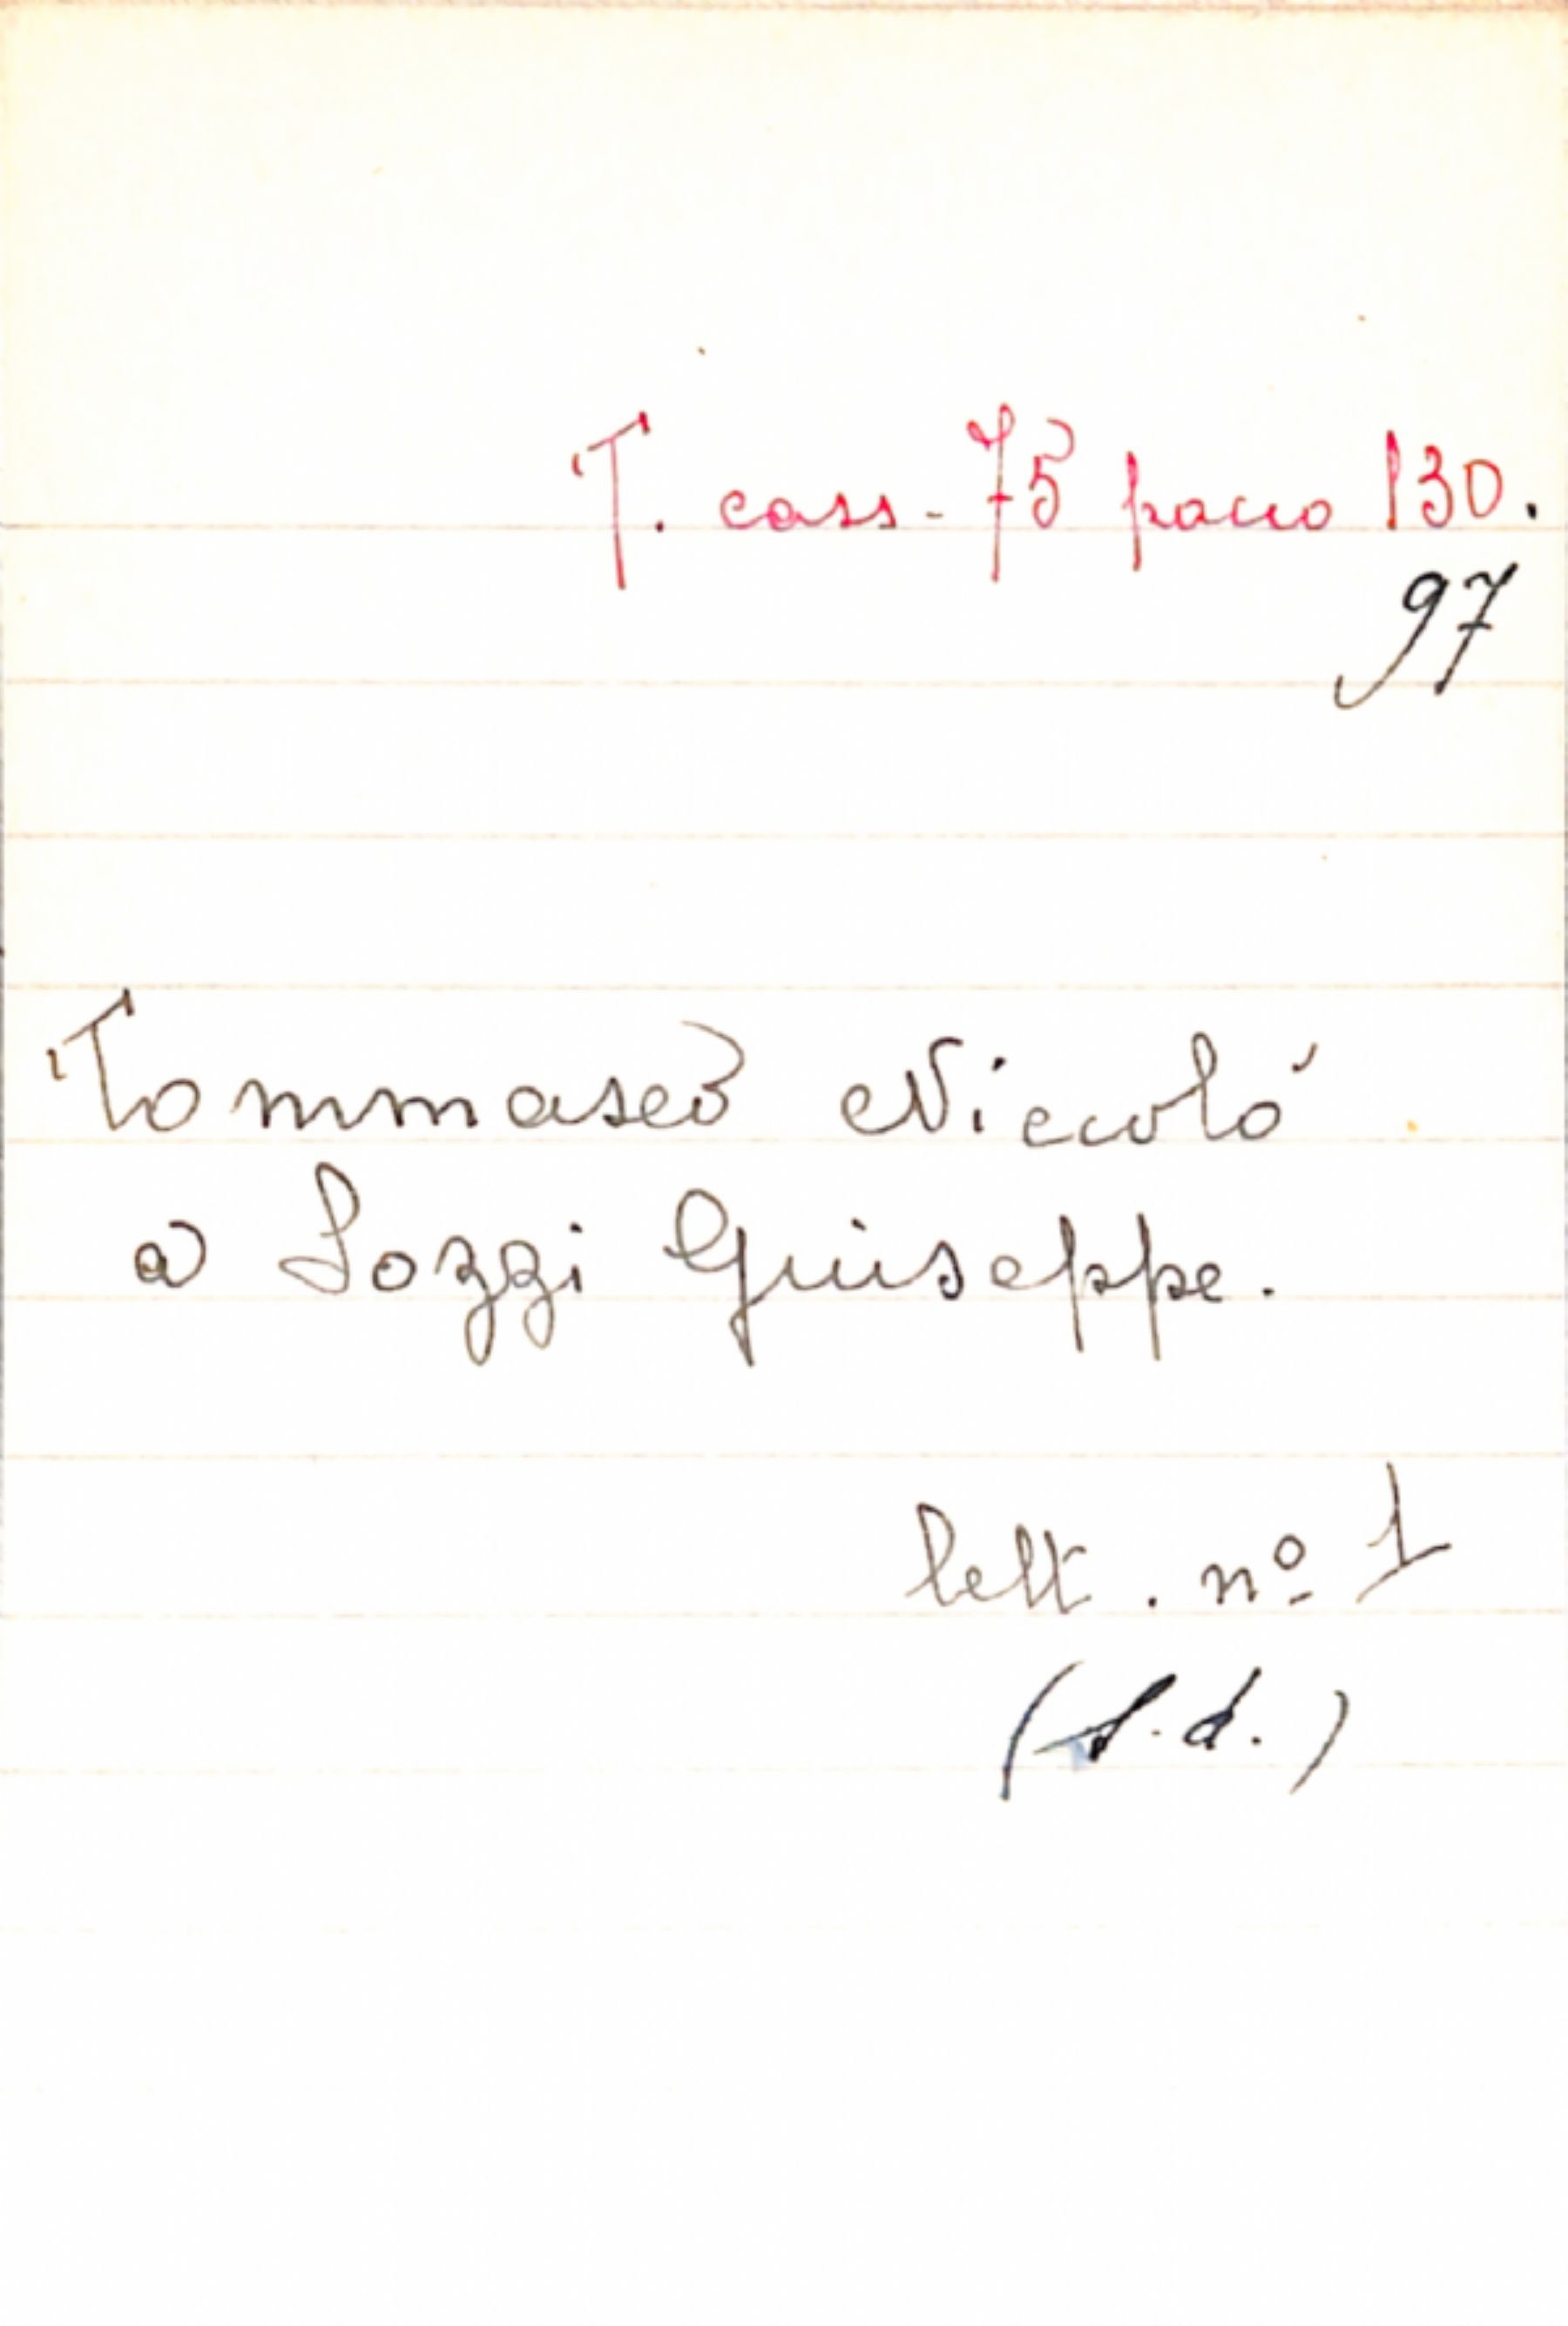 T. cass. 75 pacco 130.
97
Tommaseo Niccolò
a Sozzi Giuseppe.
lett. nº 1
(s.d.)